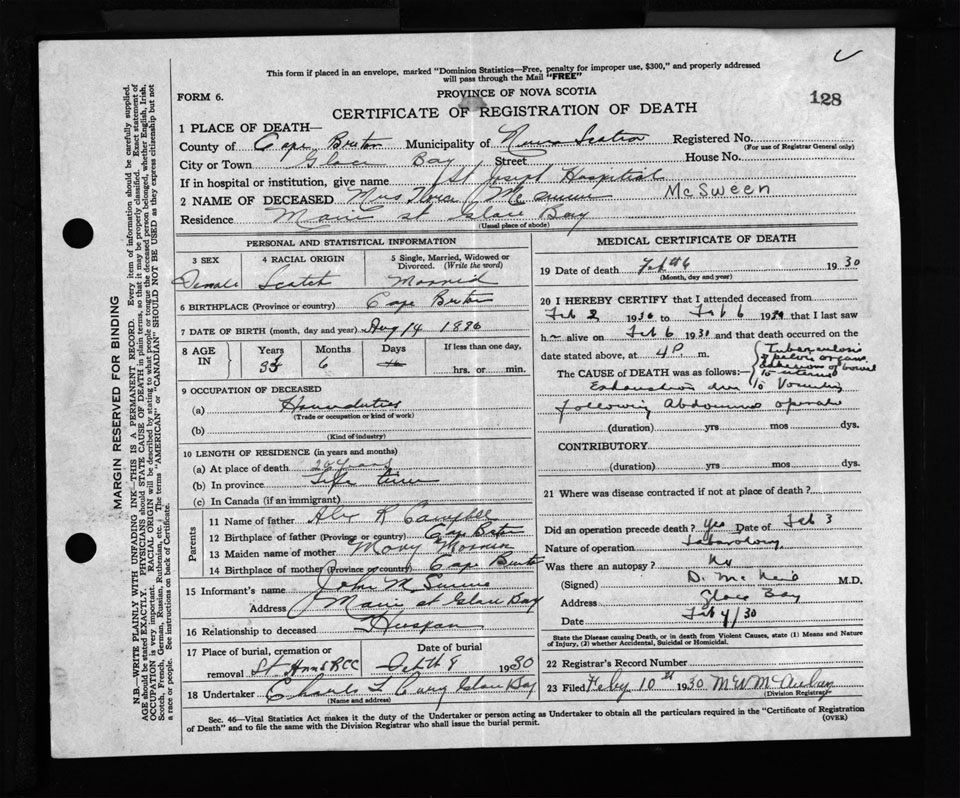 This form if placed in an envelope, marked "Dominion Statistics—Free, penalty for improper use, $300," and properly addressed
will pass through the Mail "FREE"
FORM 6.
PROVINCE OF NOVA SCOTIA
128
CERTIFICATE OF REGISTRATION OF DEATH
1 PLACE OF DEATH—
County of Cape Breton Municipality of Nova Scotia Registered No.
(For use of Registrar General only)
City or Town Glace Bay Street House No.
If in hospital or institution, give name St Joseph Hospital
2 NAME OF DECEASED Mrs McSween
Residence Main st Glace Bay
(Usual place of abode)
PERSONAL AND STATISTICAL INFORMATION
3 SEX 4 RACIAL ORIGIN 5 Single, Married, Widowed or Divorced. (Write the word)
Female Scotch Married
6 BIRTHPLACE (Province or country) Cape Breton
7 DATE OF BIRTH (month, day and year) Aug 14
8 AGE IN Years Months Days If less than one day,
6 hrs. or min.
9 OCCUPATION OF DECEASED
(a)
(Trade or occupation or kind of work)
(b)
(Kind of industry)
10 LENGTH OF RESIDENCE (in years and months)
(a) At place of death
(b) In province Life time
(c) In Canada (if an immigrant)
Parents
11 Name of father Alex R Campbell
12 Birthplace of father (Province or country) Cape Breton
13 Maiden name of mother Mary
14 Birthplace of mother (Province or country) Cape Breton
15 Informant's name John
Address Main st Glace Bay
16 Relationship to deceased Husban
17 Place of burial, cremation or removal St Anns RCC Date of burial 1930
18 Undertaker Glace Bay
(Name and address)
MEDICAL CERTIFICATE OF DEATH
19 Date of death Feb 6 1930
(Month, day and year)
20 I HEREBY CERTIFY that I attended deceased from
Feb 2 1930 to Feb 6 that I last saw
h alive on Feb 6 1930 and that death occurred on the
date stated above, at 4 P. m.
The CAUSE OF DEATH was as follows:— Tuberculosis
of pelvic organs
adhesions of bowel
to uterus
Exhaustion due to Vomiting
following Abdominal
(duration) yrs mos dys.
CONTRIBUTORY.
(duration) yrs mos dys.
21 Where was disease contracted if not at place of death?
Did an operation precede death? yes Date of Feb 3
Nature of operation
Was there an autopsy? No
(Signed) D. McNeil M.D.
Address Glace Bay
Date
State the Disease causing Death, or in death from Violent Causes, state (1) Means and Nature
of Injury, (2) whether Accidental, Suicidal or Homicidal.
22 Registrar's Record Number
23 Filed Feby 10th 1930
(Division Registrar)
Sec. 46—Vital Statistics Act makes it the duty of the Undertaker or person acting as Undertaker to obtain all the particulars required in the "Certificate of Registration
of Death" and to file the same with the Division Registrar who shall issue the burial permit. (OVER)
MARGIN RESERVED FOR BINDING
N.B.—WRITE PLAINLY WITH UNFADING INK—THIS IS A PERMANENT RECORD. Every item of information should be carefully supplied.
AGE should be stated EXACTLY. PHYSICIANS should STATE CAUSE OF DEATH in plain terms, so that it may be properly classified. Exact statement of
OCCUPATION is very important. RACIAL ORIGIN will be described by stating to what people or tongue the deceased person belonged, whether English, Irish,
Scotch, French, German, Russian, Ruthenian, etc. The terms "AMERICAN" or "CANADIAN" SHOULD NOT BE USED as they express citizenship but not
a race or people. See instructions on back of Certificate.